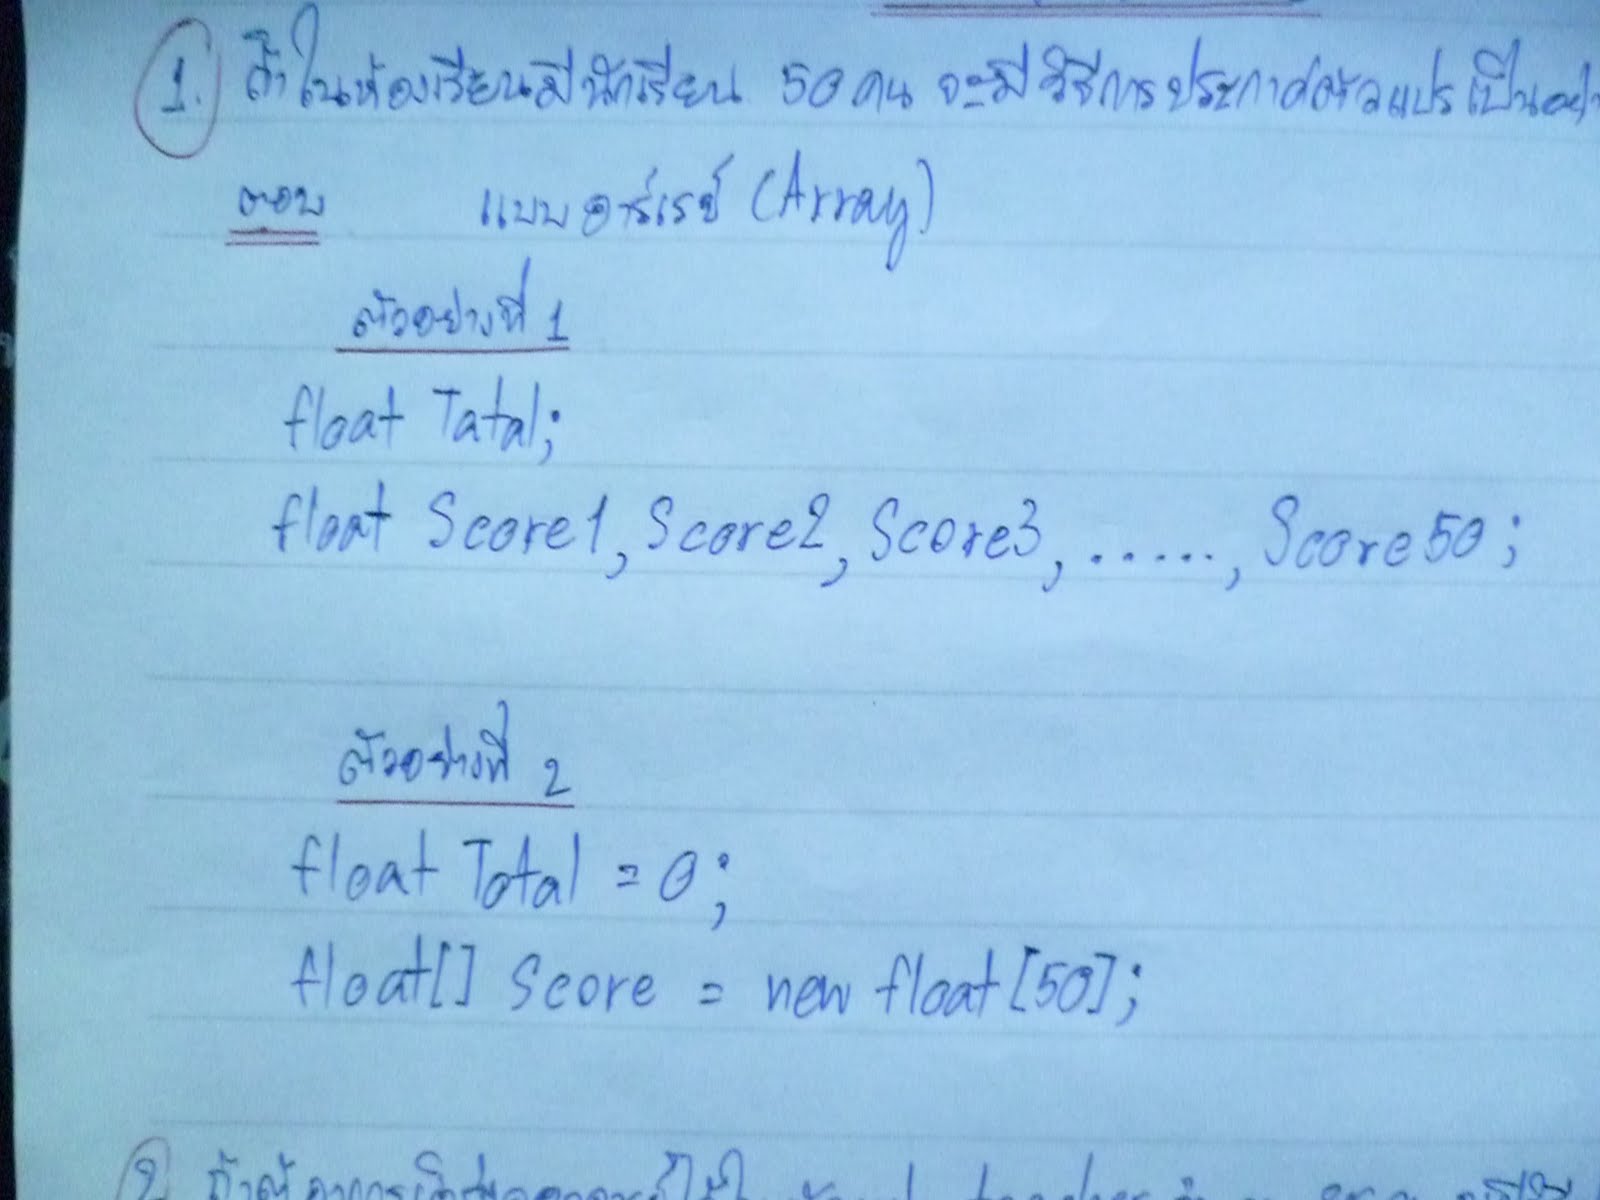 1. ถ้าในห้องเรียนมีนักเรียน 50 คน จะมีวิธีการประกาศตัวแปรเป็นอย่า
ตอบ แบบอาร์เรย์ (Array)
ตัวอย่างที่ 1
float Tatal;
float Score1, Score2, Score3, ......, Score50;
ตัวอย่างที่ 2
float Total = 0;
float[] Score = new float[50];
2. ถ้าต้องการ